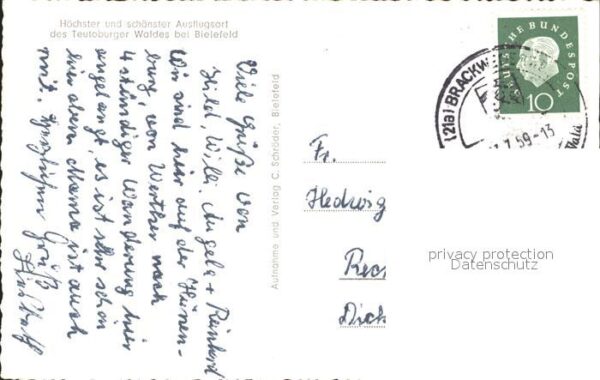 Höchster und schönster Ausflugsort
des Teutoburger Waldes bei Bielefeld
Viele Grüße von
Hild, Willi, Angela + Reinhard
Wir sind hier auf der Hünen-
burg, von Werther nach
4 stündiger Wanderung hier
angelangt, es ist sehr schön
hier oben. Mama ist auch
mit. Herzlichen Gruß
Aufnahme und Verlag C. Schröder, Bielefeld
DEUTSCHE BUNDESPOST
10
(21a) BRACKW
.7.59-13
Fr.
Hedwig
Rec
Dick
privacy protection
Datenschutz